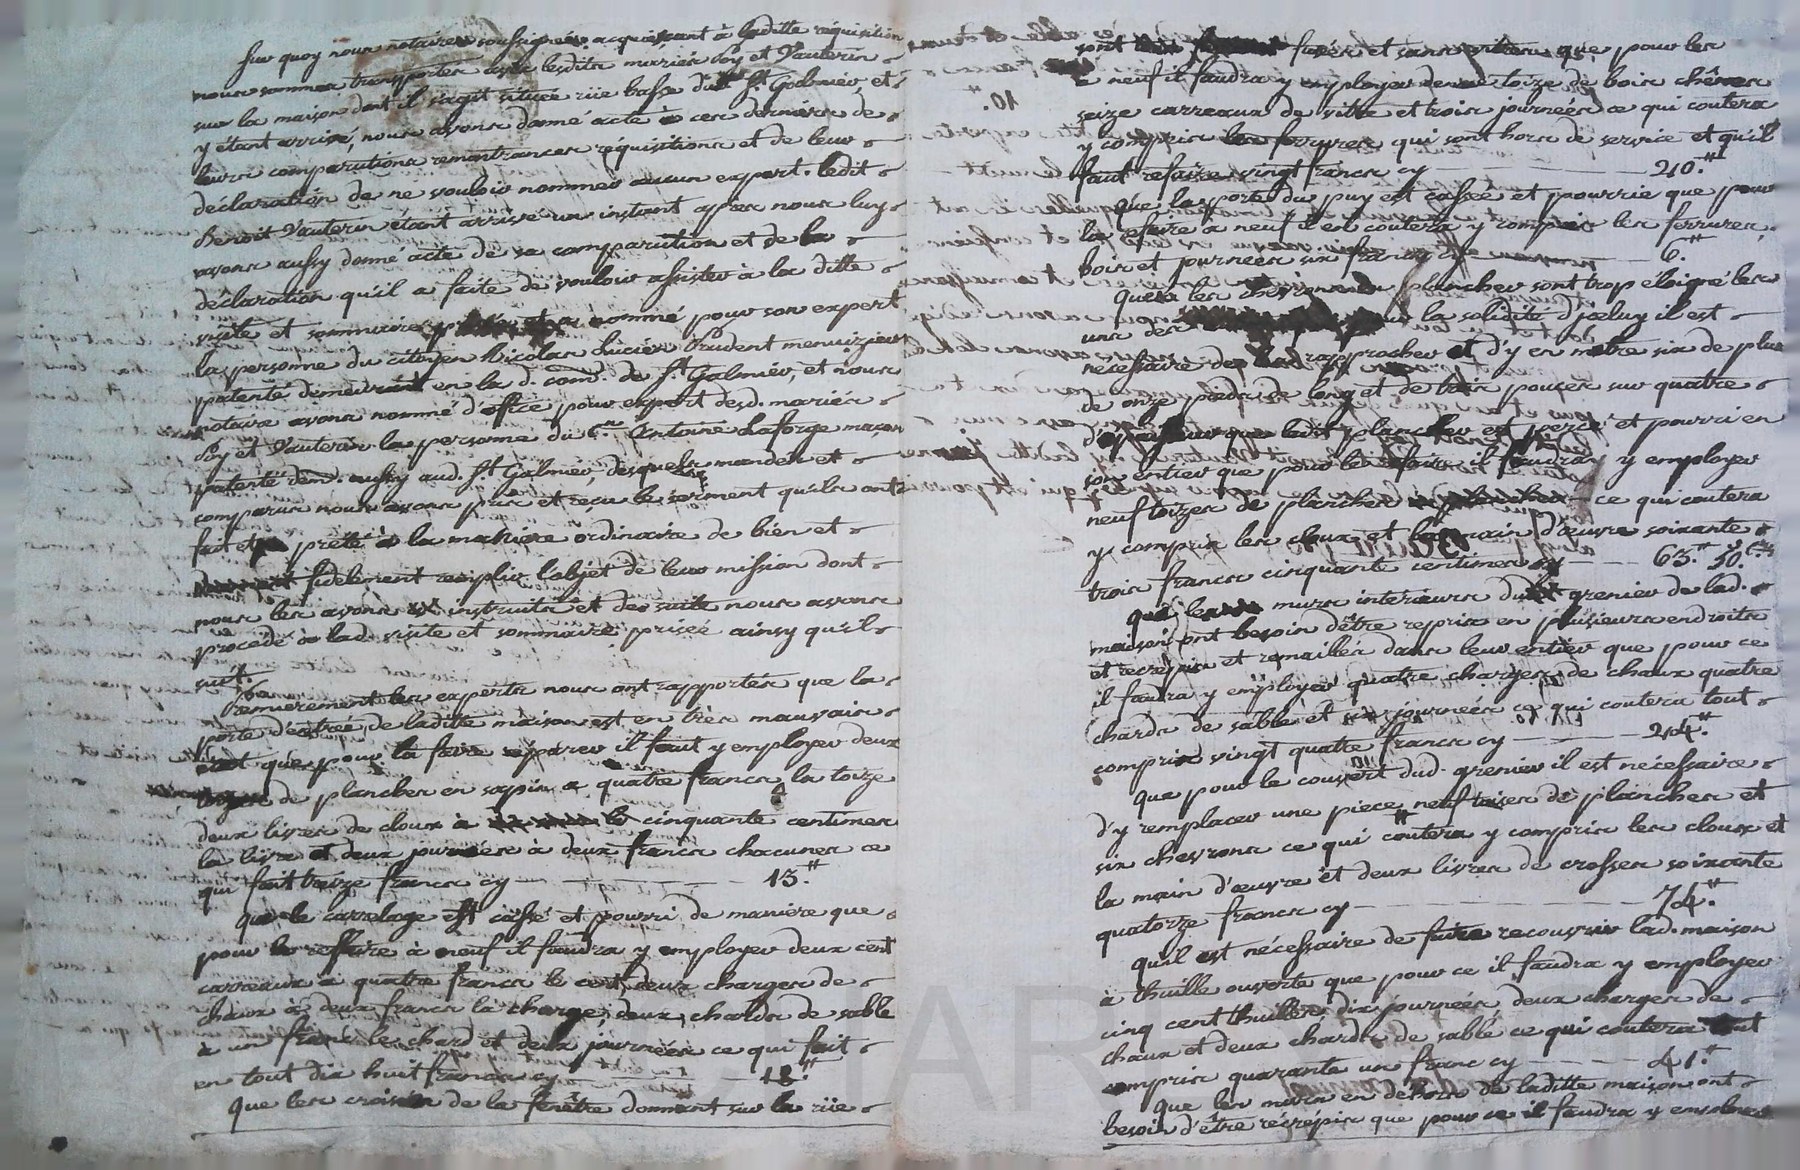 Sur quoy nous notaires soussignées acquiessant à laditte réquisition
nous sommes transportés avec lesdits mariés Soy et Vauterin
sur la maison dont il s'agit située rüe basse dudt St. Galmier, et
y étant arrivé, nous avons donné acte à ces derniers de
leurs comparutions remontrances réquisitions et de leur
déclaration de ne vouloir nommer aucun expert. ledit
Benoit Vauterin étant arrivé un instant après nous luy
avons aussy donné acte de sa comparution et de la
déclaration qu'il a faite de vouloir assister à la ditte
visite et sommaire et a nommé pour son expert
la personne du citoyen Nicolas Lucien Prudent menuizier
patenté demeurant en la d. com. de St. Galmier, et nous
notaire avons nommé d'office pour expert desd. mariés
Soy et Vauterin la personne du Cen. Antoine Laforge maçon
patenté dem. aussy aud. St. Galmier, desquels mandés et
comparus nous avons pris et reçu le serment qu'ils ont
fait et prêté à la maniere ordinaire de bien et
fidelement remplir l'objet de leur mission dont
nous les avons instruits et de suite nous avons
procédé à lad. visite et sommaire prisée ainsy qu'il
suit.
Premierement les experts nous ont rapportés que la
porte d'entrée de laditte maison est en très mauvais
état que pour la faire réparer il faut y employer deux
toizes de plancher en sapin a quatre francs la toize
deux livres de cloux à cinquante centimes
la livre et deux journées à deux francs chacunes ce
qui fait treize francs cy 13.tt
Que le carrelage est cassé et pourri de maniere que
pour le reffaire à neuf il faudra y employer deux cent
carreaux a quatre francs le cent, deux charges de
chaux à deux francs la charge, deux chards de sable
à un franc le chard et deux journées ce qui fait
en tout dix huit francs cy 18.tt
Que les croisées de la fenêtre donnant sur la rüe
sont fusés et sans que pour les
a neuf il faudra y employer toize de bois chêne
seize carreaux de vitre et trois journées ce qui coutera
y compris les ferrures qui sont hors de service et qu'il
faut refaire vingt francs cy 20.tt
Que la porte du puy est cassée et pourrie que pour
la refaire a neuf il en coutera y compris les ferrures,
bois et journées six francs cy 6.tt
Que les chevrons du plancher sont trop éloigné les
uns des pour la solidité d'iceluy il est
nécessaire de les rapprocher et d'y en mettre six de plus
de onze pieds de long et de trois pouces sur quatre
d'épaisseur que ledit plancher est percé et pourri en
son entier que pour le refaire il faudra y employer
neuf toizes de plancher ce qui coutera
y compris les cloux et la main d'œuvre soixante
trois francs cinquante centimes cy 63.tt 50.cmes
Que les murs interieurs dudt grenier de lad.
maison ont besoin d'être repris en plusieurs endroits
et recrépis et remaillés dans leur entier que pour ce
il faudra y employer quatre charges de chaux quatre
chards de sable et journées ce qui coutera tout
compris vingt quatre francs cy 24.tt
que pour le couvert dud. grenier il est nécessaire
d'y remplacer une piece, neuf toises de plancher et
six chevrons ce qui coutera y compris les cloux et
la main d'œuvre et deux livres de crosses soixante
quatorze francs cy 74.tt
qu'il est nécessaire de faire recouvrir lad. maison
à thuille ouverte que pour ce il faudra y employer
cinq cent thuilles, dix journées, deux charges de
chaux et deux chards de sable ce qui coutera tout
compris quarante un franc cy 41.tt
Que les murs en dehors de laditte maison ont
besoin d'être récrépis que pour ce il faudra y employer